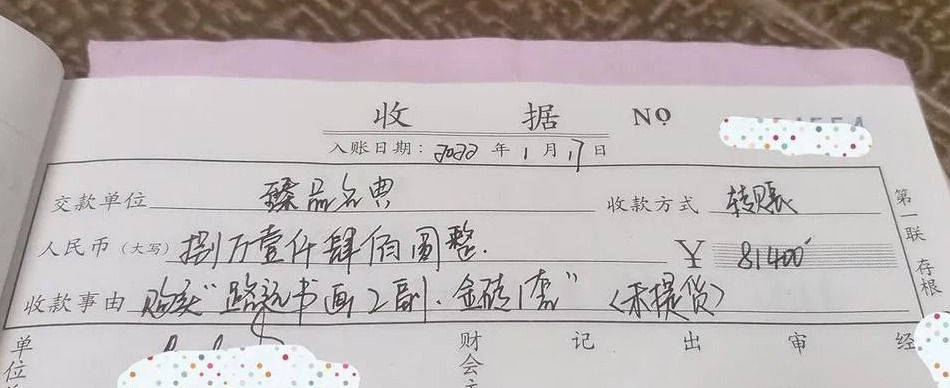 收 据 NO
入账日期：2022 年 1 月 17 日
交款单位 臻品名典 收款方式 转账
人民币（大写） 捌万壹仟肆佰圆整. ¥ 81400
收款事由 购买“路远书画2副·金砖1套”（未提货）
第一联 存根
单位 财会主 记 出 审 经